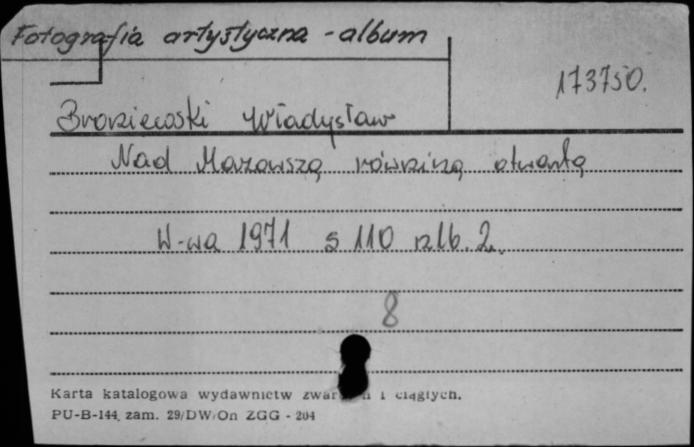 Fotografia artystyczna - album
173750.
Broniewski Władysław
Nad Mazowszą równiną otwartą
W-wa 1971 s 110 nlb. 2.
8
Karta katalogowa wydawnictw i ciągłych.
PU-B-144, zam. 29/DW/On ZGG - 204